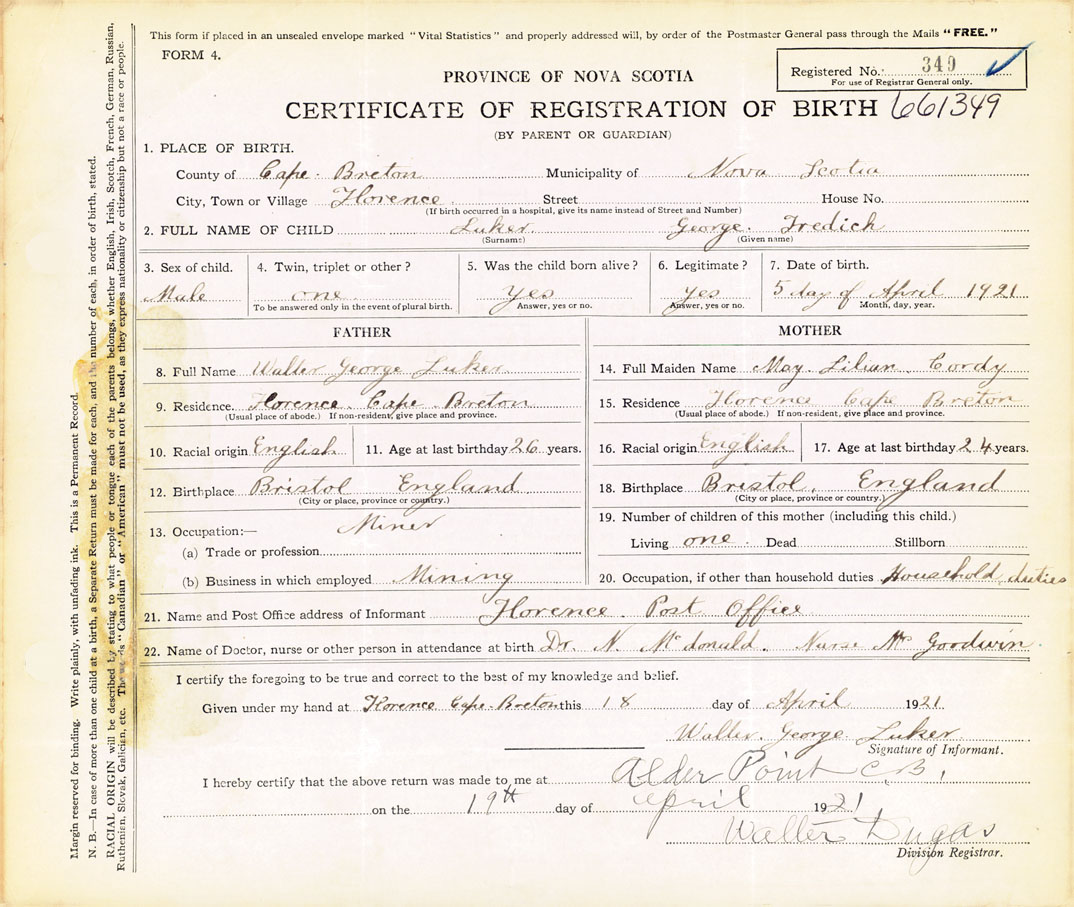 This form if placed in an unsealed envelope marked "Vital Statistics" and properly addressed will, by order of the Postmaster General pass through the Mails "FREE."
FORM 4.
Registered No. 349
For use of Registrar General only.
PROVINCE OF NOVA SCOTIA
CERTIFICATE OF REGISTRATION OF BIRTH 661349
(BY PARENT OR GUARDIAN)
1. PLACE OF BIRTH.
County of Cape Breton Municipality of Nova Scotia
City, Town or Village Florence Street House No.
(If birth occurred in a hospital, give its name instead of Street and Number)
2. FULL NAME OF CHILD Luker George Fredich
(Surname) (Given name)
3. Sex of child. 4. Twin, triplet or other? 5. Was the child born alive? 6. Legitimate? 7. Date of birth.
Male one Yes yes 5 day of April 1921
To be answered only in the event of plural birth. Answer, yes or no. Answer, yes or no. Month, day, year.
FATHER
8. Full Name Walter George Luker
9. Residence. Florence Cape Breton
(Usual place of abode.) If non-resident, give place and province.
10. Racial origin English 11. Age at last birthday 26 years.
12. Birthplace Bristol England
(City or place, province or country.)
13. Occupation:— Miner
(a) Trade or profession
(b) Business in which employed Mining
MOTHER
14. Full Maiden Name May Lilian Cordy
15. Residence Florence Cape Breton
(Usual place of abode.) If non-resident, give place and province.
16. Racial origin English 17. Age at last birthday 24 years.
18. Birthplace Bristol, England
(City or place, province or country.)
19. Number of children of this mother (including this child.)
Living one Dead Stillborn
20. Occupation, if other than household duties Household duties
21. Name and Post Office address of Informant Florence Post Office
22. Name of Doctor, nurse or other person in attendance at birth Dr. N. McDonald. Nurse Mrs Goodwin
I certify the foregoing to be true and correct to the best of my knowledge and belief.
Given under my hand at Florence Cape Breton this 18 day of April 1921
Walter George Luker
Signature of Informant.
I hereby certify that the above return was made to me at Alder Point C.B.,
on the 19th day of April 1921
Walter Dugas
Division Registrar.
Margin reserved for binding. Write plainly, with unfading ink. This is a Permanent Record.
N. B.—In case of more than one child at a birth, a Separate Return must be made for each, and the number of each, in order of birth, stated.
RACIAL ORIGIN will be described by stating to what people or tongue each of the parents belongs, whether English, Irish, Scotch, French, German, Russian,
Ruthenian, Slovak, Galician, etc. The words "Canadian" or "American" must not be used, as they express nationality or citizenship but not a race or people.